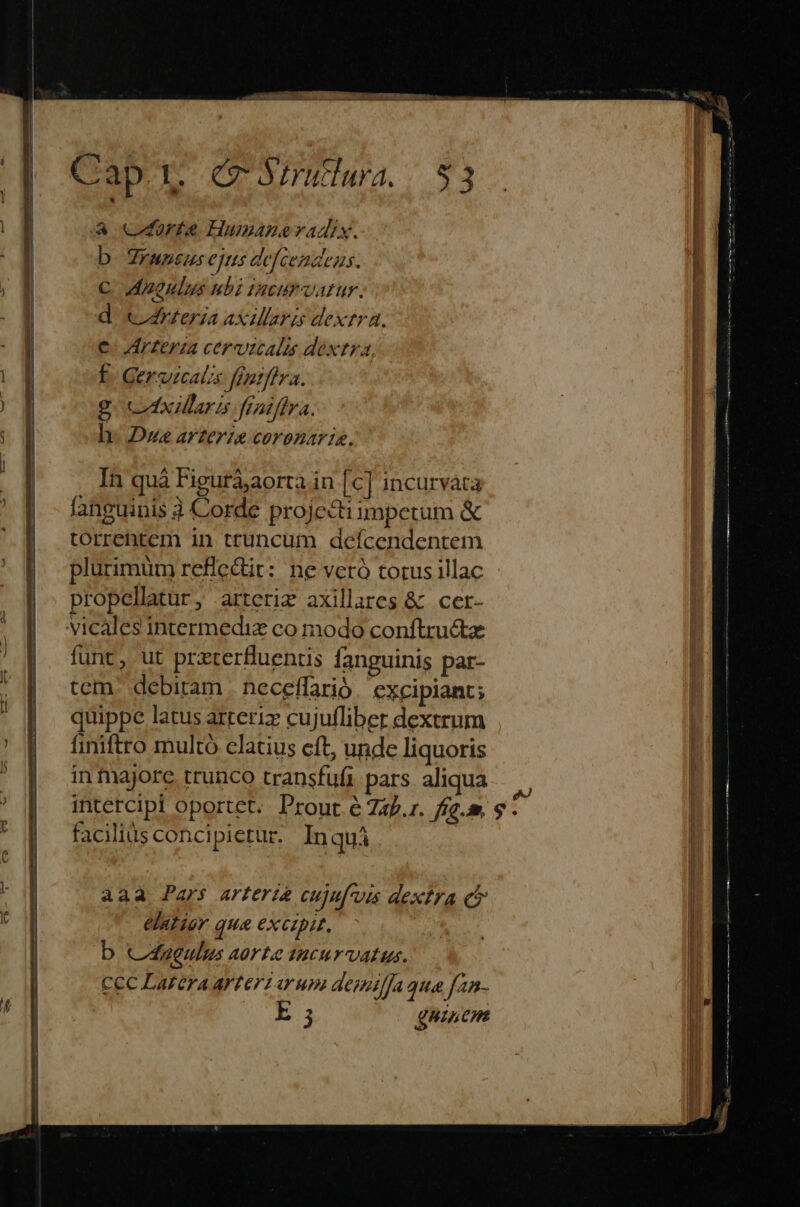 Cap. 1. & Structura. 53
a Aortæ Humanæ radix.
b Truncus ejus deſcendens.
c Angulus ubi incurvatur.
d Arteria axillaris dextra.
e Arteria cervicalis dextra.
f Cervicalis ſiniſtra.
g Axillaris ſiniſtra.
h Duæ arteriæ coronariæ.
In quâ Figurâ, aorta in [c] incurvata
ſanguinis à Corde projecti impetum &
torrentem in truncum deſcendentem
plurimùm reflectit: ne verò totus illac
propellatur, arteriæ axillares & cer-
vicales intermediæ eo modo conſtructæ
ſunt, ut præterfluentis ſanguinis par-
tem debitam neceſſariò excipiant;
quippe latus arteriæ cujuſlibet dextrum
ſiniſtro multò elatius eſt, unde liquoris
in majore trunco transfuſi pars aliqua
intercipi oportet. Prout è Tab. 1. fig. 5.
faciliùs concipietur. In quâ
aaa Pars arteriæ cujuſvis dextra &
elatior quæ excipit.
b Angulus aortæ incurvatus.
ccc Latera arteriarum demiſſa quæ ſan-
E 3 guinem